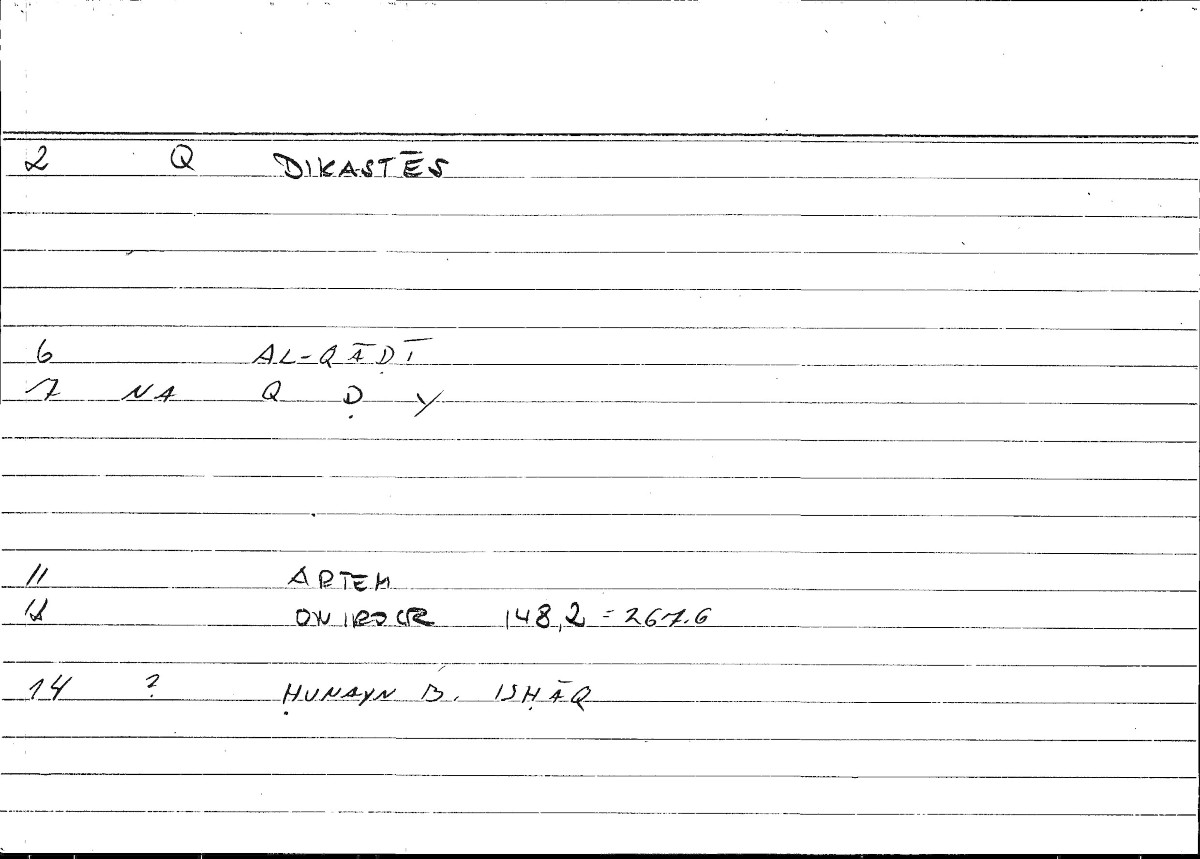 2 Q DIKASTĒS
6 AL-QĀḌĪ
7 NA Q Ḍ Y
11 ARTEM
12 ONIROCR 148,2 = 267.6
14 ? ḤUNAYN B. ISḤĀQ